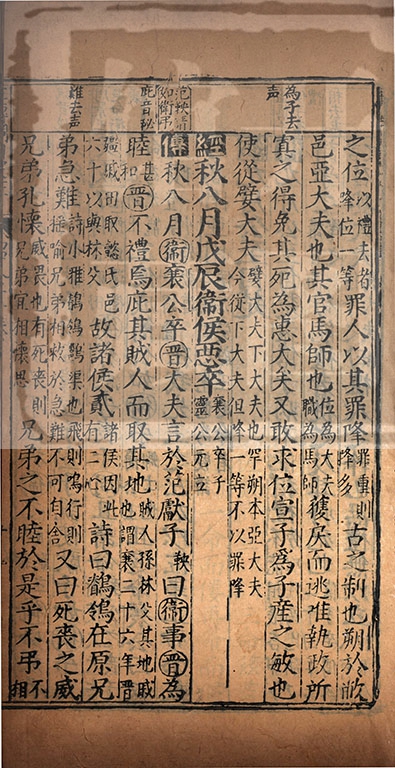 為子去
声
庇音祕
難去声
之位以禮去者降位一等罪人以其罪降罪重則降多古之制也朔於敝
邑亞大夫也其官馬師也位為大夫職為馬師獲戾而逃唯執政所
寘之得免其死為惠大矣又敢求位宣子爲子產之敏也
使從嬖大夫嬖大夫下大夫也罕朔本亞大夫今從下大夫但降一等不以罪降
經秋八月戊辰衞侯惡卒襄公卒子靈公元立
傳秋八月衞襄公卒晉大夫言於范獻子鞅曰衞事晉為
睦甚和晉不禮焉庇其賊人而取其地賊人孫林父其地戚也謂襄二十六年晉
疆戚田取懿氏邑六十以與林父故諸侯貳諸侯因此有二心詩曰鶺鴒在原兄
弟急難詩小雅鶺鴒渠也飛則鳴行則搖喻兄弟相救於急難不可自舍又曰死喪之威
兄弟孔懷威畏也有死喪則兄弟宜相懷思兄弟之不睦於是乎不弔不相